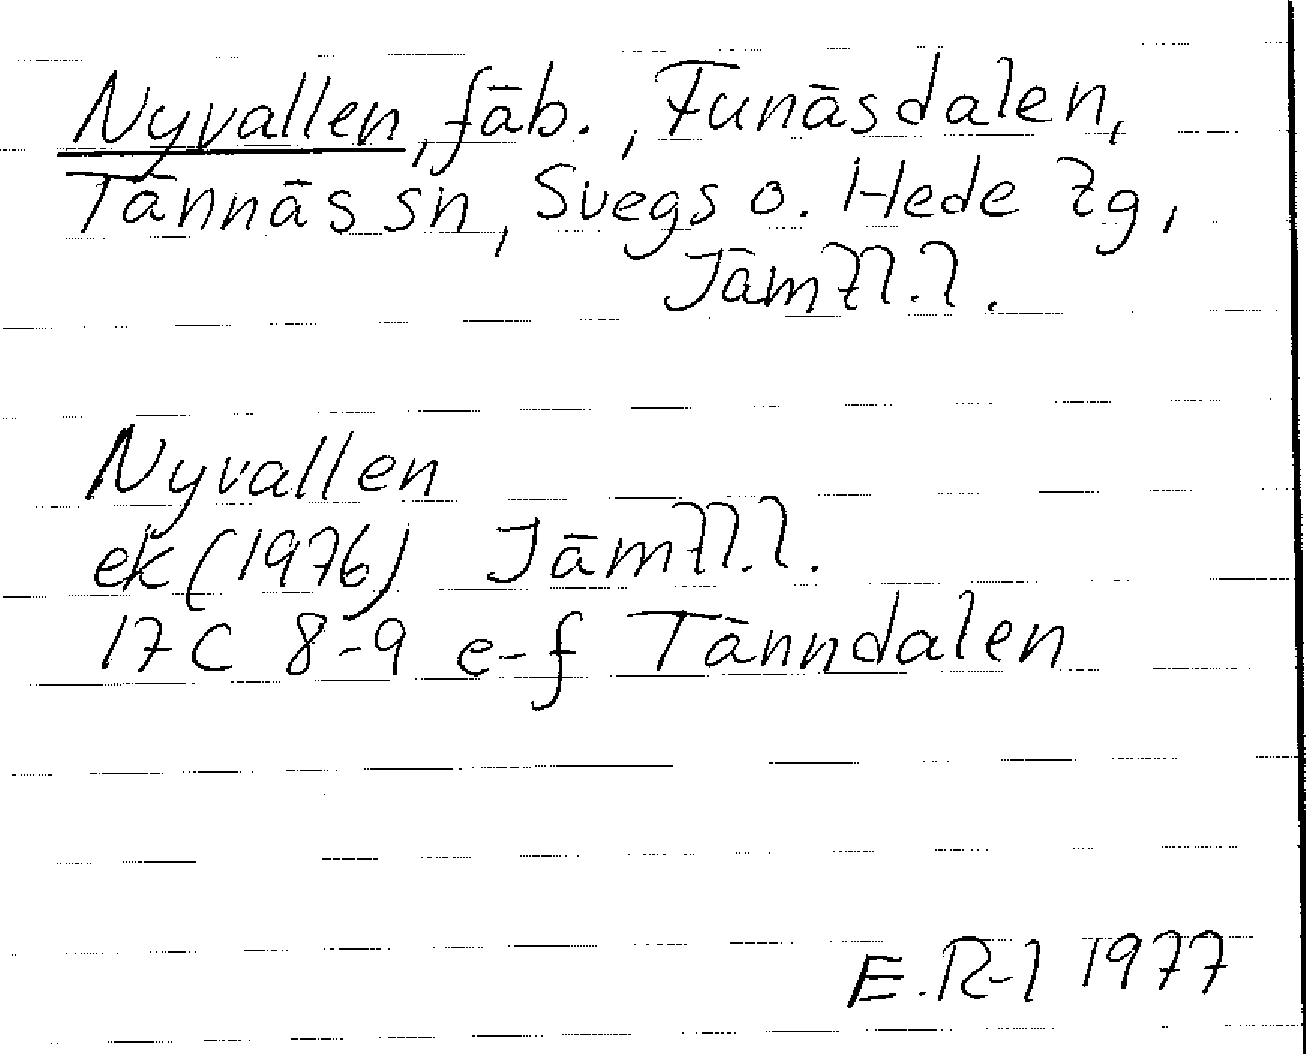 Nyvallen, fäb., Funäsdalen,
Tännäs sn, Svegs o. Hede tg,
Jämtl.l.
Nyvallen
ek (1976) Jämtl.l.
17C 8-9 e-f Tänndalen
E.R-l 1977